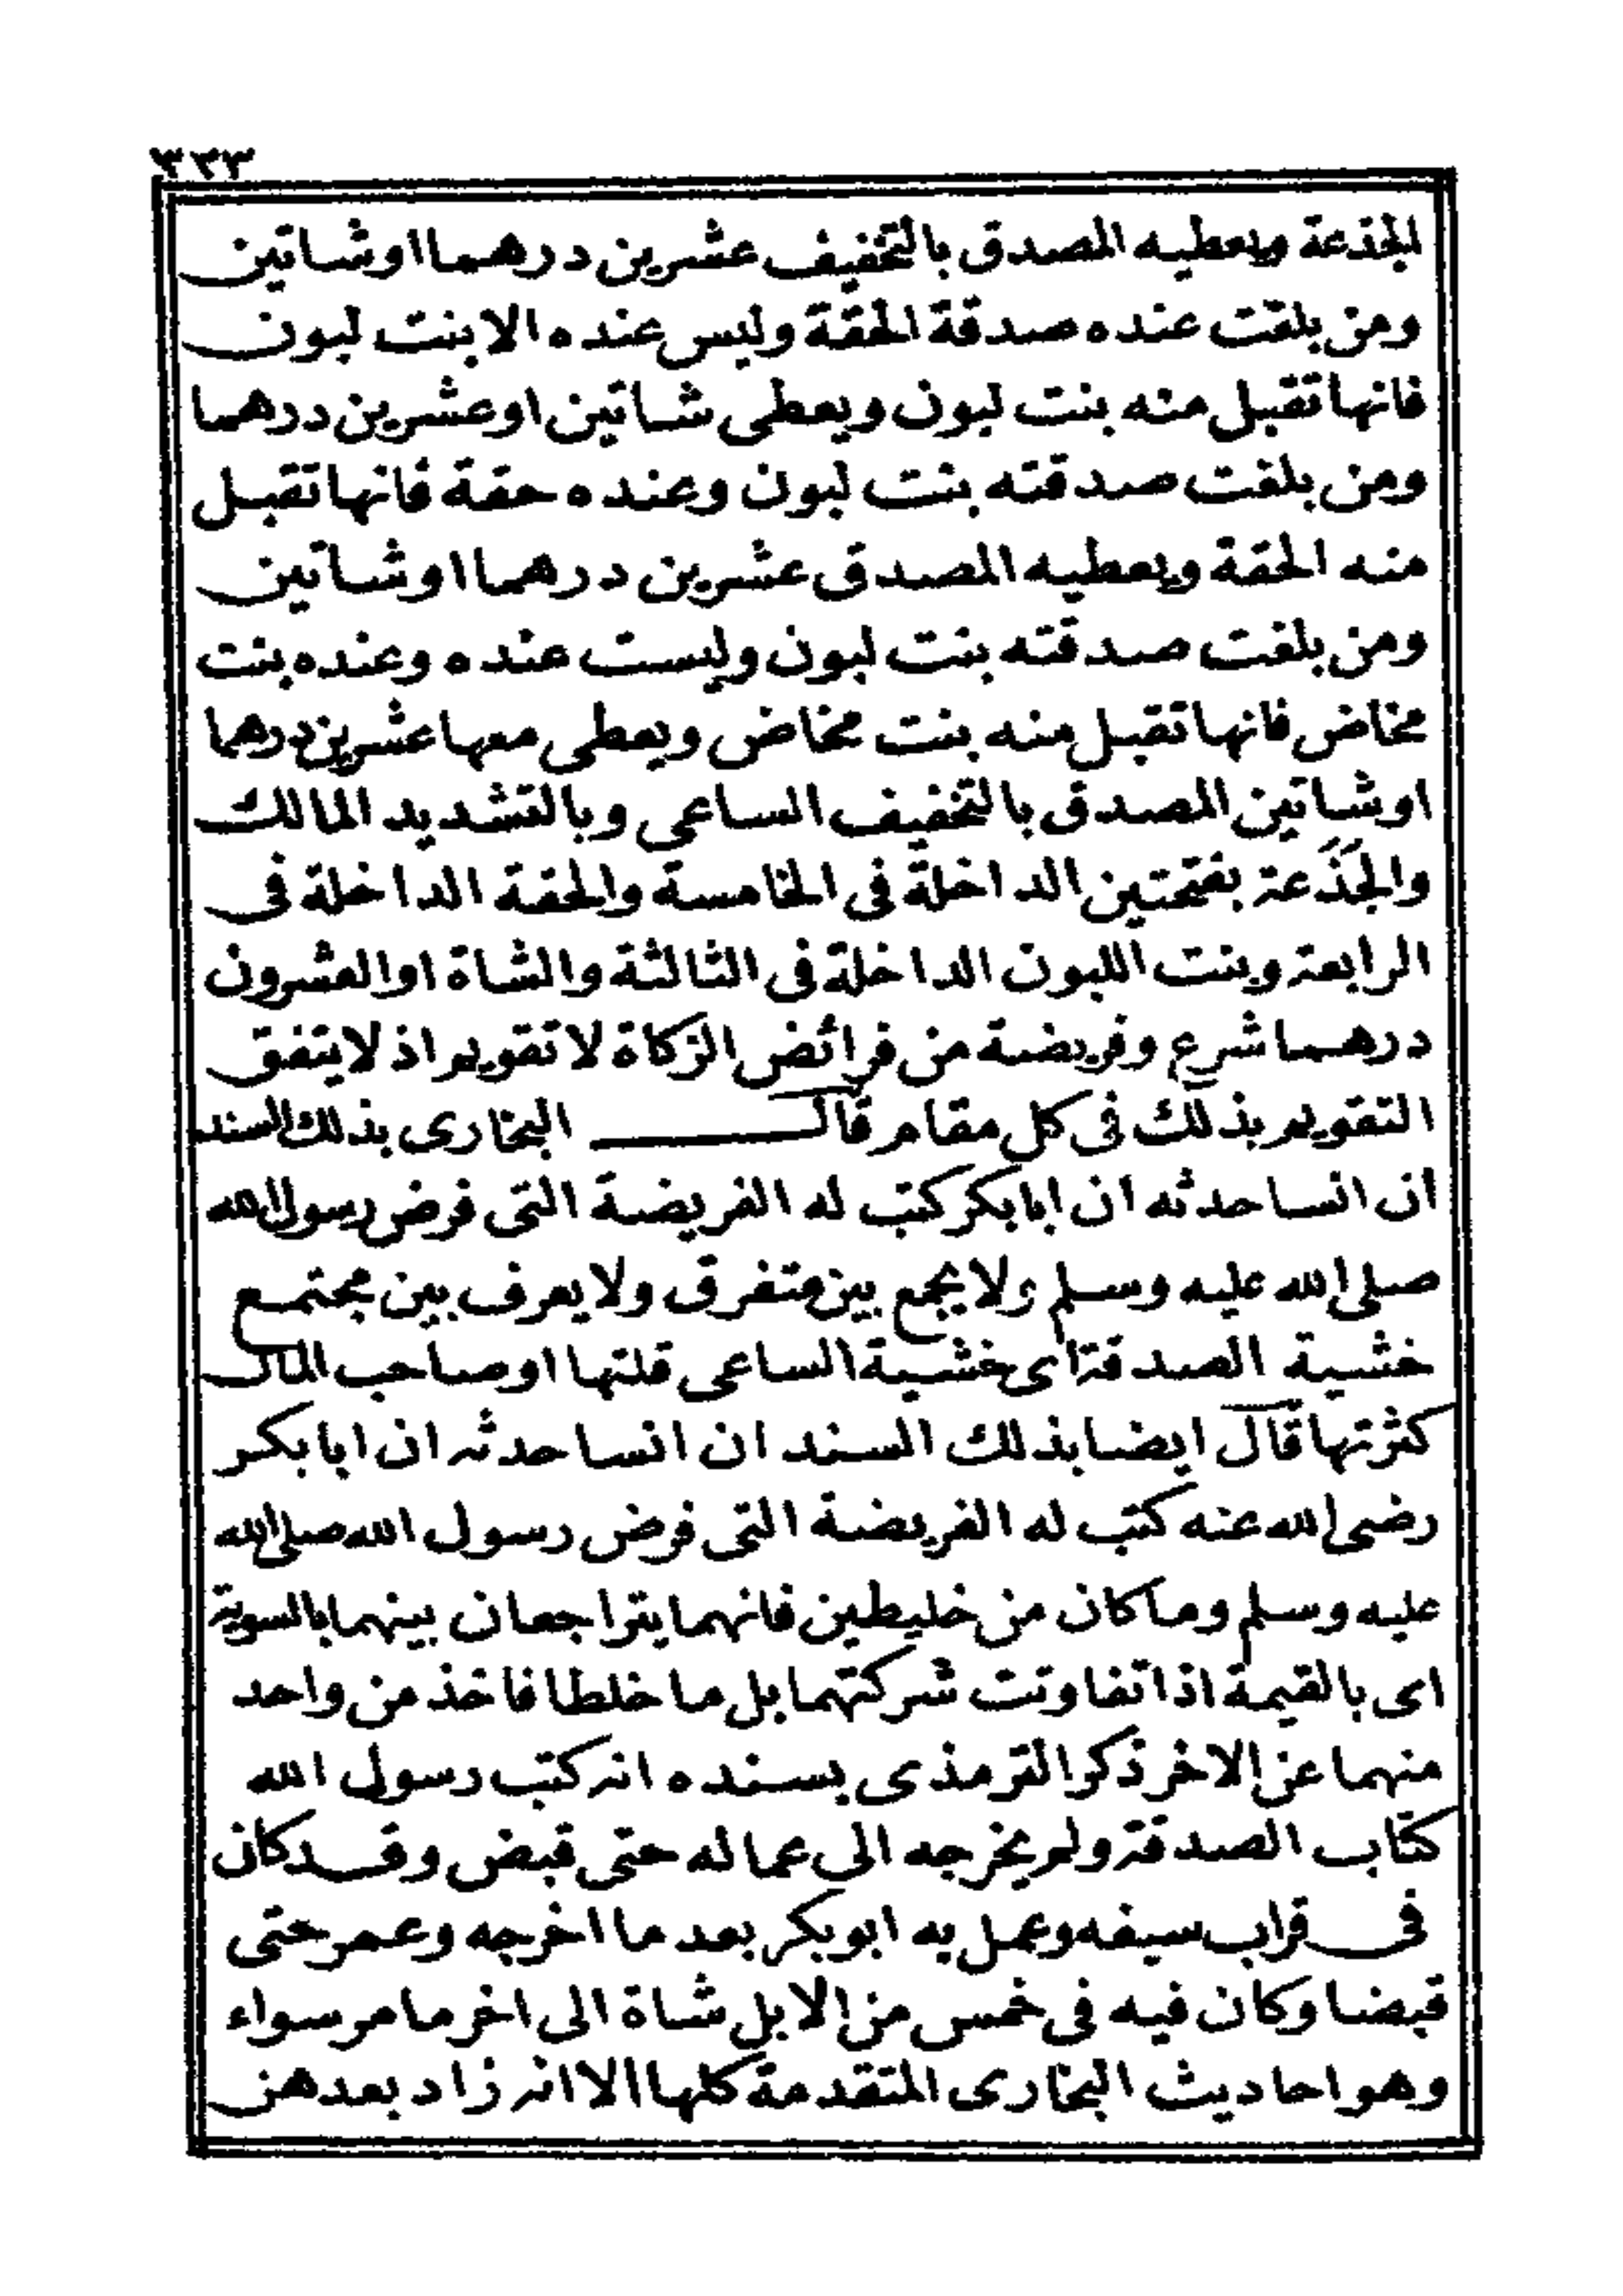 ٣٣٣
الجذعة ويعطيه المصدق بالتخفيف عشرين درهما اوشاتين
ومن بلغت عنده صدقة الحقة وليس عنده الا بنت لبون
فانها تقبل منه بنت لبون ويعطى شاتين اوعشرين درهما
ومن بلغت صدقته بنت لبون وعنده حقة فانها تقبل
منه الحقة ويعطيه المصدق عشرين درهما اوشاتين
ومن بلغت صدقته بنت لبون وليست عنده وعنده بنت
مخاض فانها تقبل منه بنت مخاض ويعطى معها عشرين درهما
اوشاتين المصدق بالتخفيف الساعى وبالتشديد المالك
والجَذَعة بفتحتين الداخلة فى الخامسة والحقة الداخلة فى
الرابعة وبنت اللبون الداخلة فى الثالثة والشاة اوالعشرون
درهما شرع وفريضة من فرائض الزكاة لا تقويم اذ لا يتفق
التقويم بذلك فى كل مقام قال البخارى بذلك السند
ان انسا حدثه ان ابابكر كتب له الفريضة التى فرض رسول الله
صلى الله عليه وسلم ولا يجمع بين متفرق ولا يعرف بين مجتمع
خشية الصدقة اى خشية الساعى قلتها اوصاحب المال
كثرتها قال ايضا بذلك السند ان انسا حدثه ان ابابكر
رضى الله عنه كتب له الفريضة التى فرض رسول الله صلى الله
عليه وسلم وماكان من خليطين فانهما يتراجعان بينهما بالسوية
اى بالقيمة اذا تفاوتت شركتهما بل ما خلطا فاخذ من واحد
منهما عن الاخر ذكر الترمذى بسنده انه كتب رسول الله
كتاب الصدقة ولم يخرجه الى عماله حتى قبض وقد كان
فى قراب سيفه وعمل به ابوبكر بعد ما اخرجه وعمر حتى
قبضا وكان فيه فى خمس من الابل شاة الى اخر ما مر سواء
وهو احاديث البخارى المتقدمة كلها الا انه زاد بعد هن